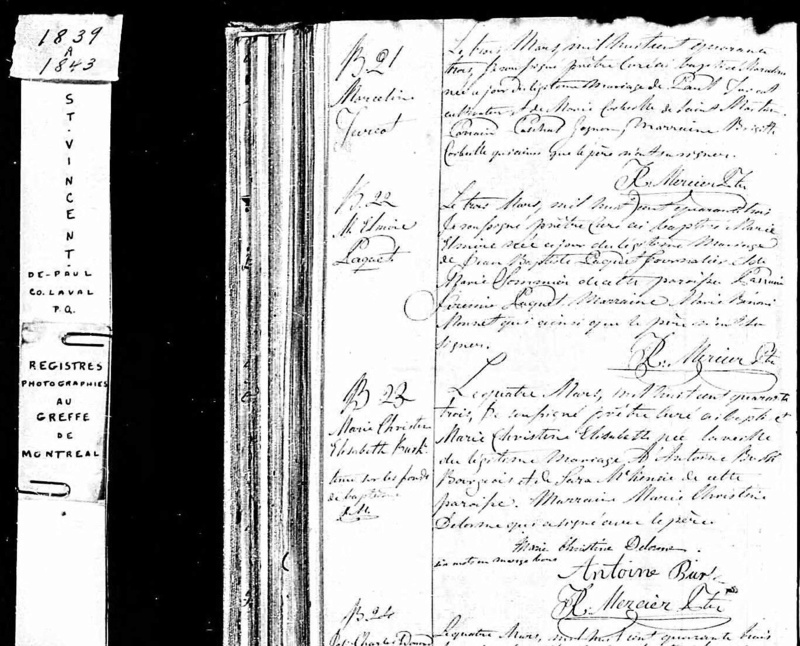 1839
A
1843
ST. VINCENT.
DE-PAUL
CO. LAVAL
P.Q.
REGISTRES
PHOTOGRAPHIES
AU
GREFFE
DE
MONTREAL
B 21
Marceline
Turcot
Le trois Mars, mil huit cent quarante
trois, Je soussigné prêtre curé ai baptisé Marceline
née ce jour du légitime mariage de Paul Turcot
cultivateur et de Marie Corbeille de Saint Martin.
Parrain Paschal Gagnon, Marraine
Corbeille qui ainsi que le père n'ont su signer.
Mercier Ptre
B. 22
M. Elmire
Paquet
Le trois Mars, mil huit cent quarante trois
Je soussigné prêtre curé ai baptisé Marie
Elmire née ce jour du légitime mariage
de Jean Baptiste Paquet journalier et de
Marie de cette paroisse Parrain
Paquet Marraine Marie
qui ainsi que le père n'ont su
signer.
Mercier Ptre
B 23
Marie Christine
Elisabeth Burk
tenue sur les fonds
de baptême
Le quatre Mars, mil huit cent quarante
trois, Je soussigné prêtre curé ai baptisé
Marie Christine Elisabeth née la veille
du légitime mariage d'Antoine Burk
Bourgeois et de Sara McKenzie de cette
paroisse. Marraine Marie Christine
Delorme qui a signé avec le père.
Marie Christine Delorme
six mots en marge bons
Antoine Burk
Mercier Ptre
B 24
Charles
Le quatre Mars, mil huit cent quarante trois